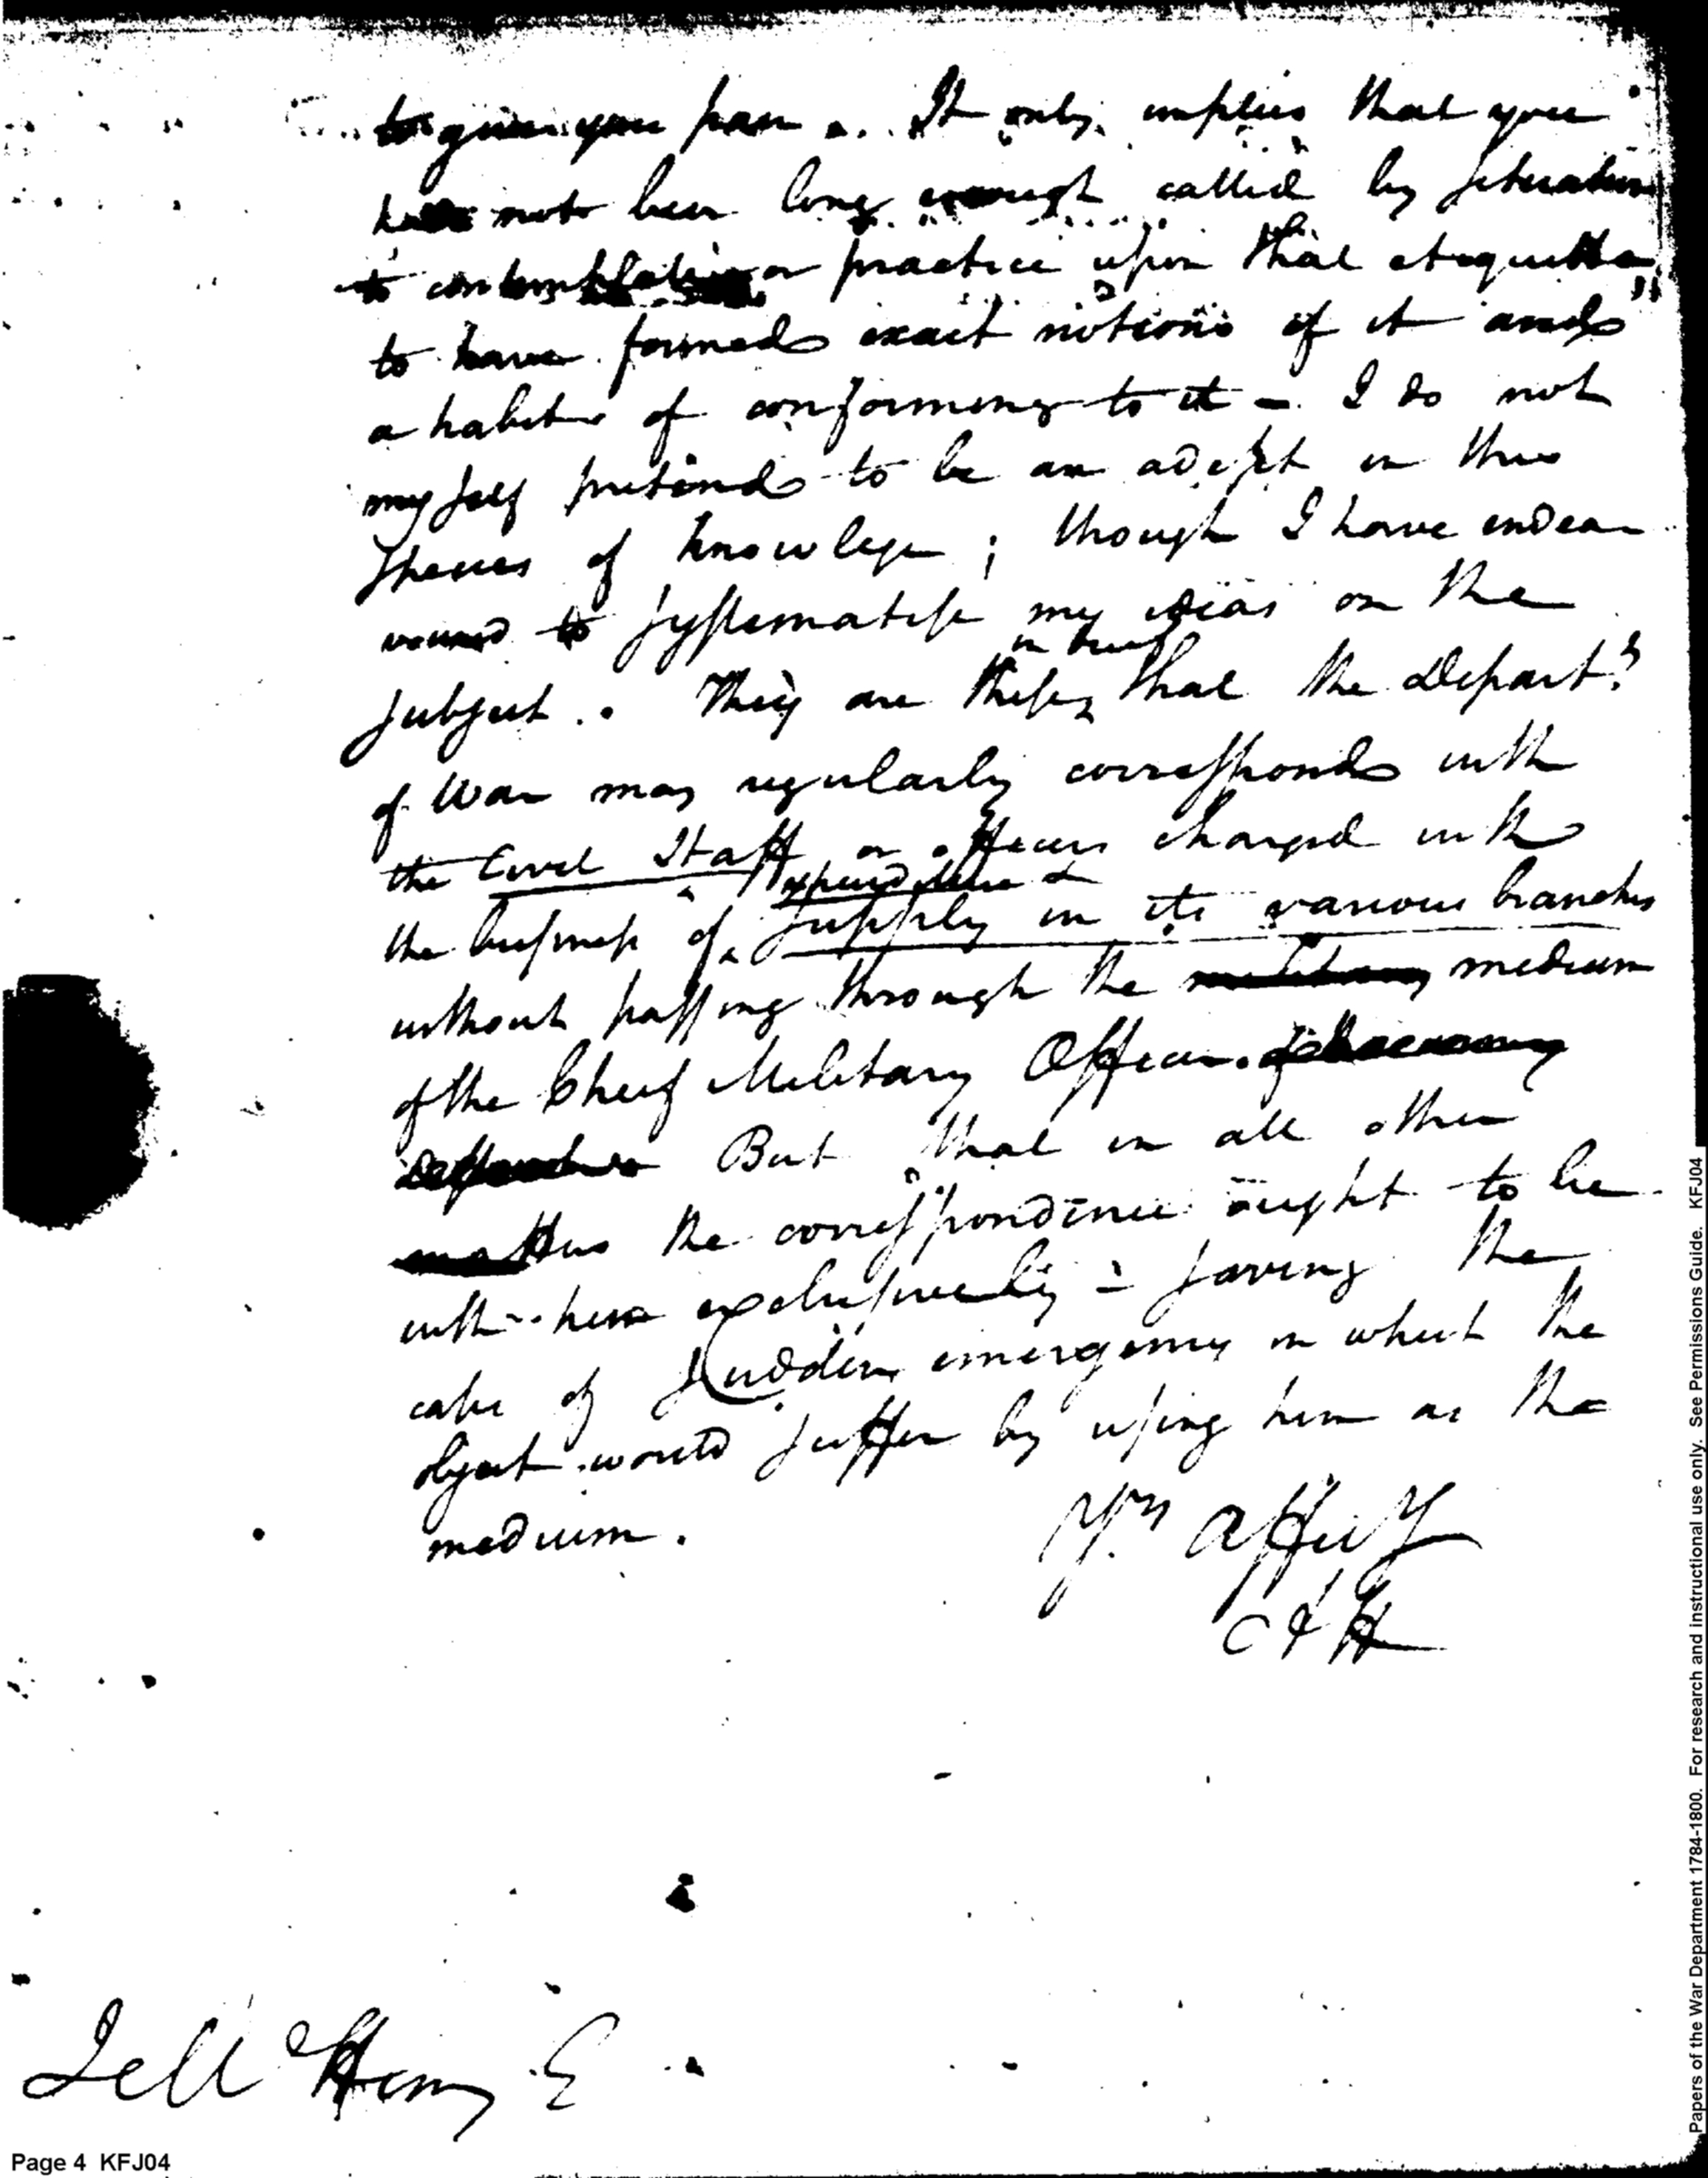 to give you pain. It only implies that you
have not been long enough called by situation
to contemplation or practice upon that etiquette
to have formed exact notions of it and
a habit of conforming to it – I do not
myself pretend to be an adept in this
species of knowlege; though I have endea
voured to systematise my ideas on the
in brief
subject. They are these, that the Depart.
of War may regularly correspond with
the Civil Staff or officers charged with
expenditure &
the business of supply in its various branches
without passing through the military medium
of the Chief Military Officer. of the army
But that in all other
matters the correspondence ought to be
with him exclusively – saving the
case of sudden emergency in which the
object would suffer by using him as the
medium.
Yrs Affecy
A H
Papers of the War Department 1784-1800. For research and instructional use only. See Permissions Guide. KFJ04
Page 4 KFJ04